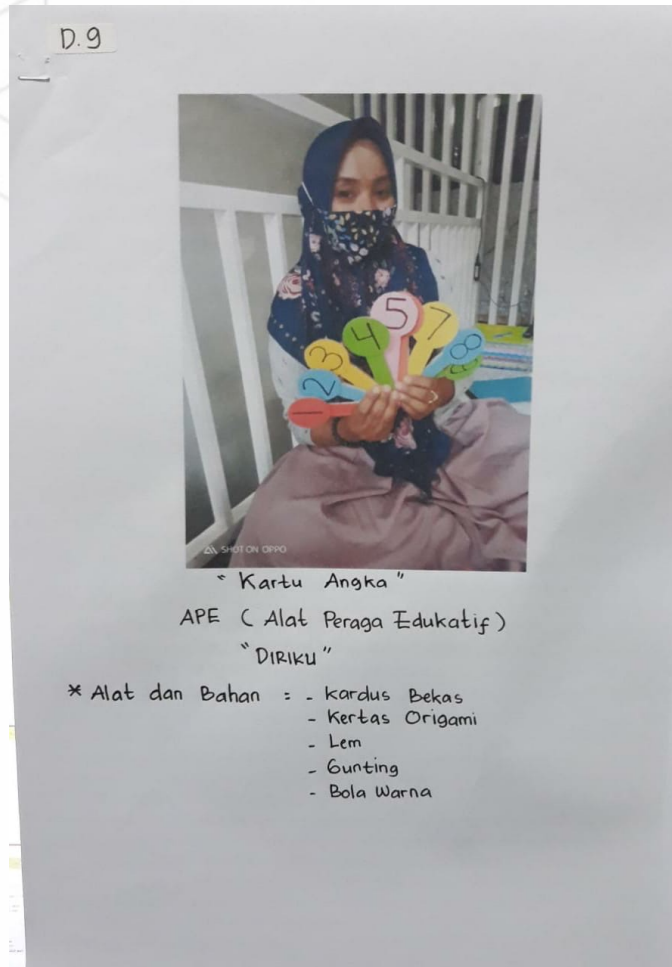 D.9
1
2
3
4
5
7
8
SHOT ON OPPO
"Kartu Angka"
APE ( Alat Peraga Edukatif )
"DIRIKU"
* Alat dan Bahan : - Kardus Bekas
- Kertas Origami
- Lem
- Gunting
- Bola Warna